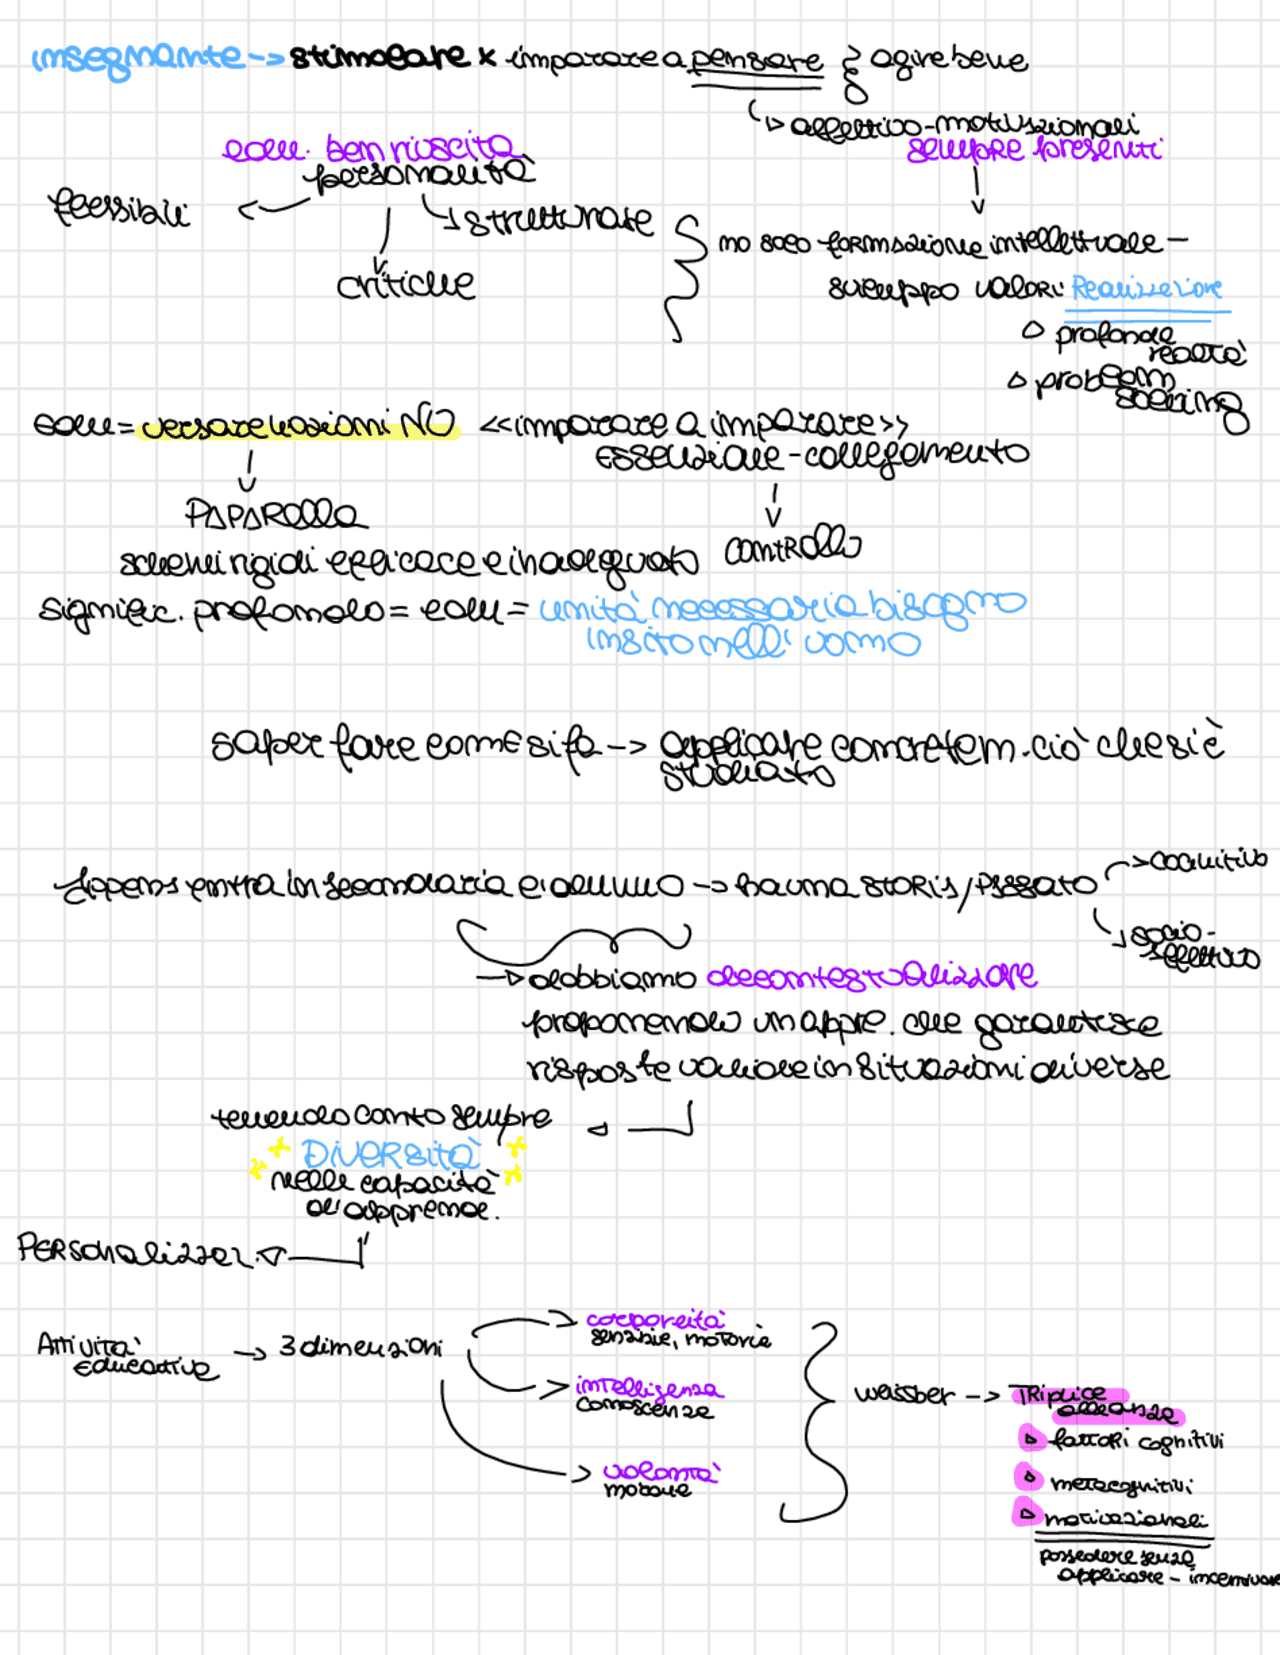 insegnante -> stimolare x imparare a pensare } agire bene
-> affettivo-motivazionali
sempre presenti
edu. ben riuscita
personalità
flessibili
strutturate
critiche
no solo formazione intellettuale -
sviluppo valori: Realizzazione
▷ profonda
realtà
▷ problem
solving
edu = versare nozioni NO <<imparare a imparare>>
essenziale - collegamento
PAPAROLLA
CONTROLLO
schemi rigidi efficace e inadeguato
signific. profondo = edu = unità necessaria bisogno
insito nell' uomo
saper fare come si fa -> applicare concretem. ciò che si è
studiato
entra in secondaria alunno -> ha una storia/passato
-> cognitivo
-> socio-
affettivo
-> dobbiamo decontestualizzare
proponendo un appre. che garantisce
risposte valide in situazioni diverse
tenendo conto sempre
DIVERSITÀ
nelle capacità
d'apprend.
PERSONALIZZAZ.
Attività
educativa
-> 3 dimensioni
-> corporeità
sensibile, motoria
-> intelligenza
conoscenza
-> volontà
morale
weissber -> TRIPLICE
alleanza
▷ fattori cognitivi
▷ metacognitivi
▷ motivazionali
possedere senza
applicare - incentivare